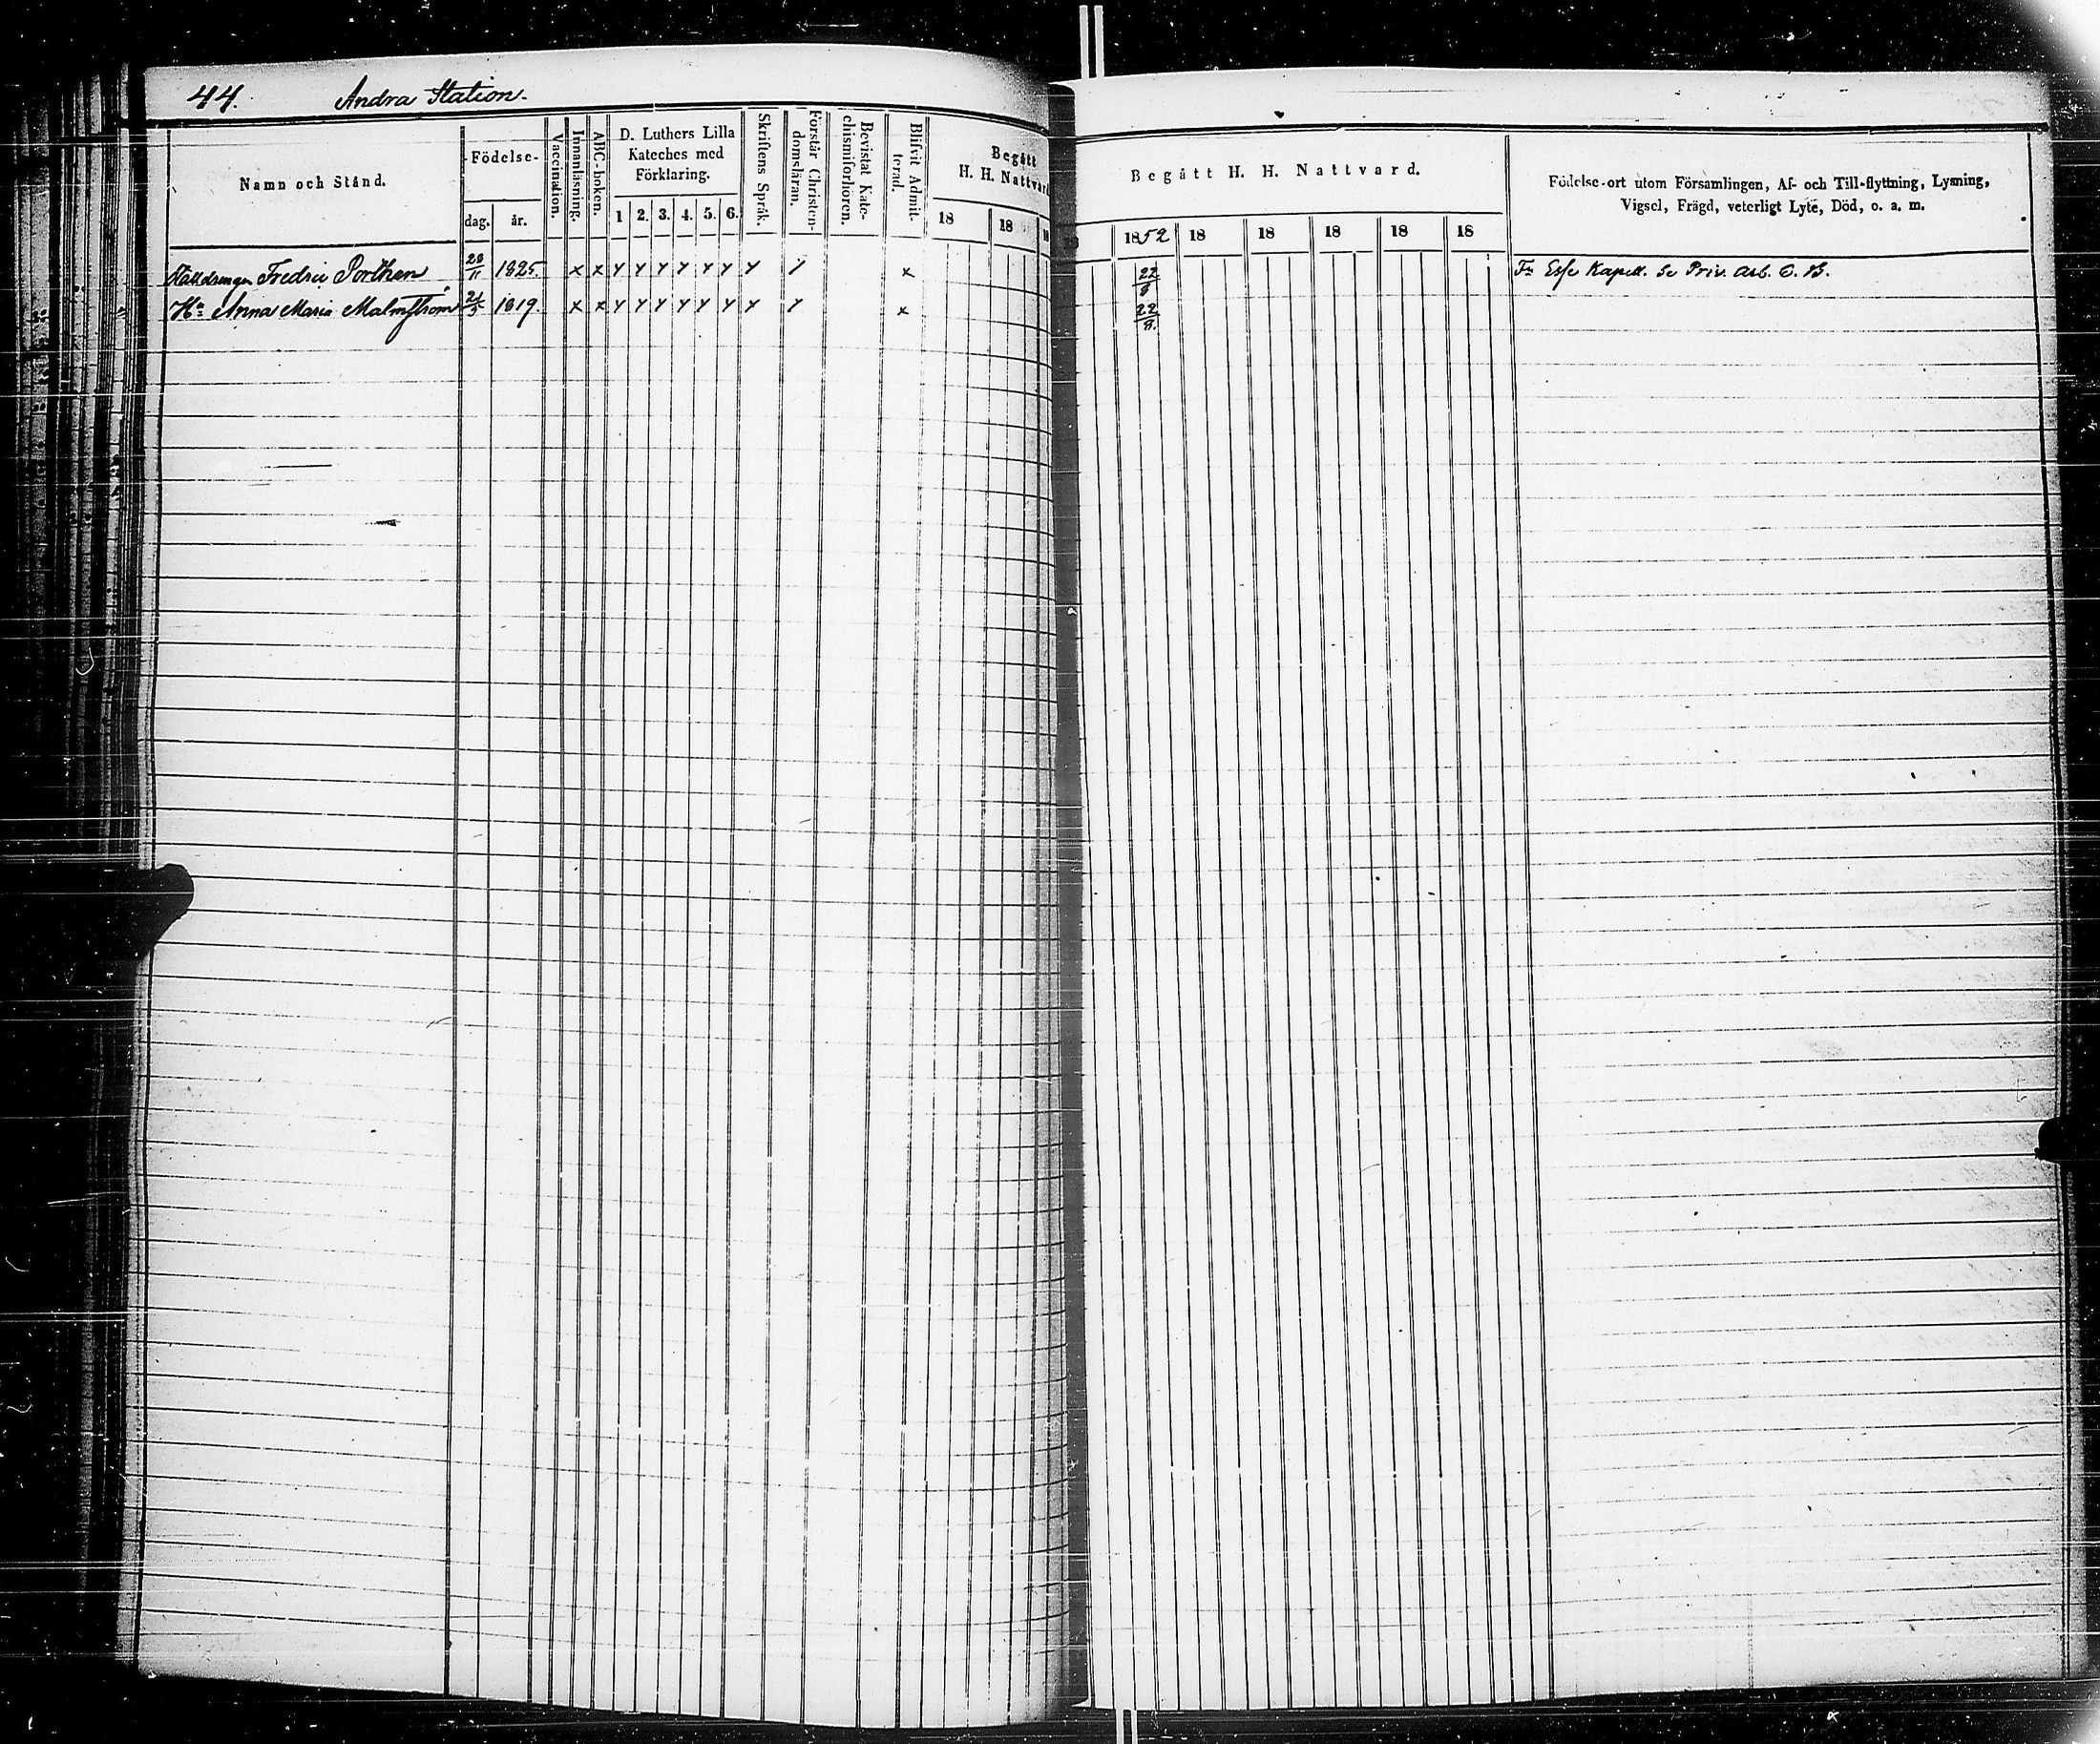 44. Andra Station.
Namn och Stånd.
Födelse-
dag. år.
Vaccination.
Innanläsning.
ABC-boken.
D. Luthers Lilla
Kateches med
Förklaring.
1 2. 3. 4. 5. 6.
Skriftens Språk.
Förstår Christen-
domsläran.
Bevistat Kate-
chismiförhören.
Blifvit Admit-
terad.
Begått
H. H. Nattvard
18 18
Begått H. H. Nattvard.
1852 18 18 18 18 18
Födelse-ort utom Församlingen, Af- och Till-flyttning, Lysning,
Vigsel, Frägd, veterligt Lyte, Död, o. a. m.
Fredric Porthen 28/11 1825. x x y y y y y y y / x 22/8 Fr. Esse Kapell. Se Priv. Att. C. B.
Hu Anna Maria Malmström 21/5 1819. x x y y y y y y y / x 22/8.